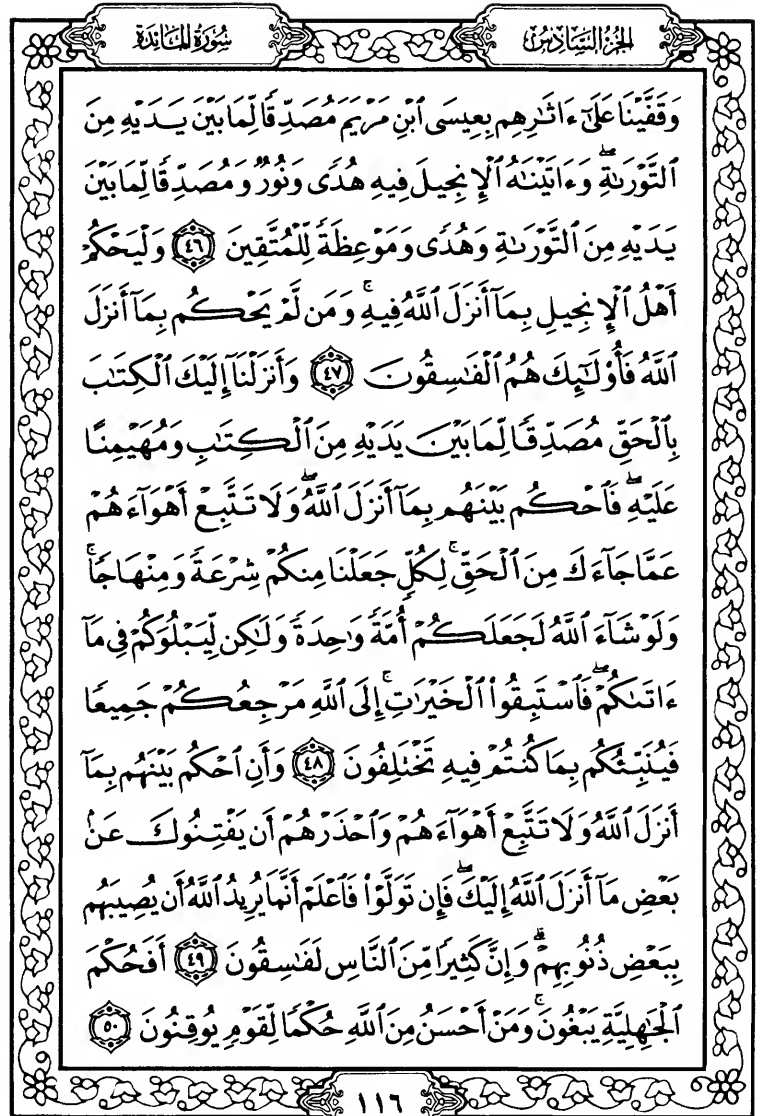 سُورَةُ المَائدة
الجزءُ السَّادِسُ
وَقَفَّيْنَا عَلَىٰٓ ءَاثَٰرِهِم بِعِيسَى ٱبْنِ مَرْيَمَ مُصَدِّقًا لِّمَا بَيْنَ يَدَيْهِ مِنَ
ٱلتَّوْرَىٰةِۖ وَءَاتَيْنَٰهُ ٱلْإِنجِيلَ فِيهِ هُدًى وَنُورٌ وَمُصَدِّقًا لِّمَا بَيْنَ
يَدَيْهِ مِنَ ٱلتَّوْرَىٰةِ وَهُدًى وَمَوْعِظَةً لِّلْمُتَّقِينَ ٤٦ وَلْيَحْكُمْ
أَهْلُ ٱلْإِنجِيلِ بِمَآ أَنزَلَ ٱللَّهُ فِيهِۚ وَمَن لَّمْ يَحْكُم بِمَآ أَنزَلَ
ٱللَّهُ فَأُو۟لَٰٓئِكَ هُمُ ٱلْفَٰسِقُونَ ٤٧ وَأَنزَلْنَآ إِلَيْكَ ٱلْكِتَٰبَ
بِٱلْحَقِّ مُصَدِّقًا لِّمَا بَيْنَ يَدَيْهِ مِنَ ٱلْكِتَٰبِ وَمُهَيْمِنًا
عَلَيْهِۖ فَٱحْكُم بَيْنَهُم بِمَآ أَنزَلَ ٱللَّهُۖ وَلَا تَتَّبِعْ أَهْوَآءَهُمْ
عَمَّا جَآءَكَ مِنَ ٱلْحَقِّۚ لِكُلٍّ جَعَلْنَا مِنكُمْ شِرْعَةً وَمِنْهَاجًاۚ
وَلَوْ شَآءَ ٱللَّهُ لَجَعَلَكُمْ أُمَّةً وَٰحِدَةً وَلَٰكِن لِّيَبْلُوَكُمْ فِى مَآ
ءَاتَىٰكُمْۖ فَٱسْتَبِقُوا۟ ٱلْخَيْرَٰتِۚ إِلَى ٱللَّهِ مَرْجِعُكُمْ جَمِيعًا
فَيُنَبِّئُكُم بِمَا كُنتُمْ فِيهِ تَخْتَلِفُونَ ٤٨ وَأَنِ ٱحْكُم بَيْنَهُم بِمَآ
أَنزَلَ ٱللَّهُ وَلَا تَتَّبِعْ أَهْوَآءَهُمْ وَٱحْذَرْهُمْ أَن يَفْتِنُوكَ عَنۢ
بَعْضِ مَآ أَنزَلَ ٱللَّهُ إِلَيْكَۖ فَإِن تَوَلَّوْا۟ فَٱعْلَمْ أَنَّمَا يُرِيدُ ٱللَّهُ أَن يُصِيبَهُم
بِبَعْضِ ذُنُوبِهِمْۗ وَإِنَّ كَثِيرًا مِّنَ ٱلنَّاسِ لَفَٰسِقُونَ ٤٩ أَفَحُكْمَ
ٱلْجَٰهِلِيَّةِ يَبْغُونَۚ وَمَنْ أَحْسَنُ مِنَ ٱللَّهِ حُكْمًا لِّقَوْمٍ يُوقِنُونَ ٥٠
١١٦